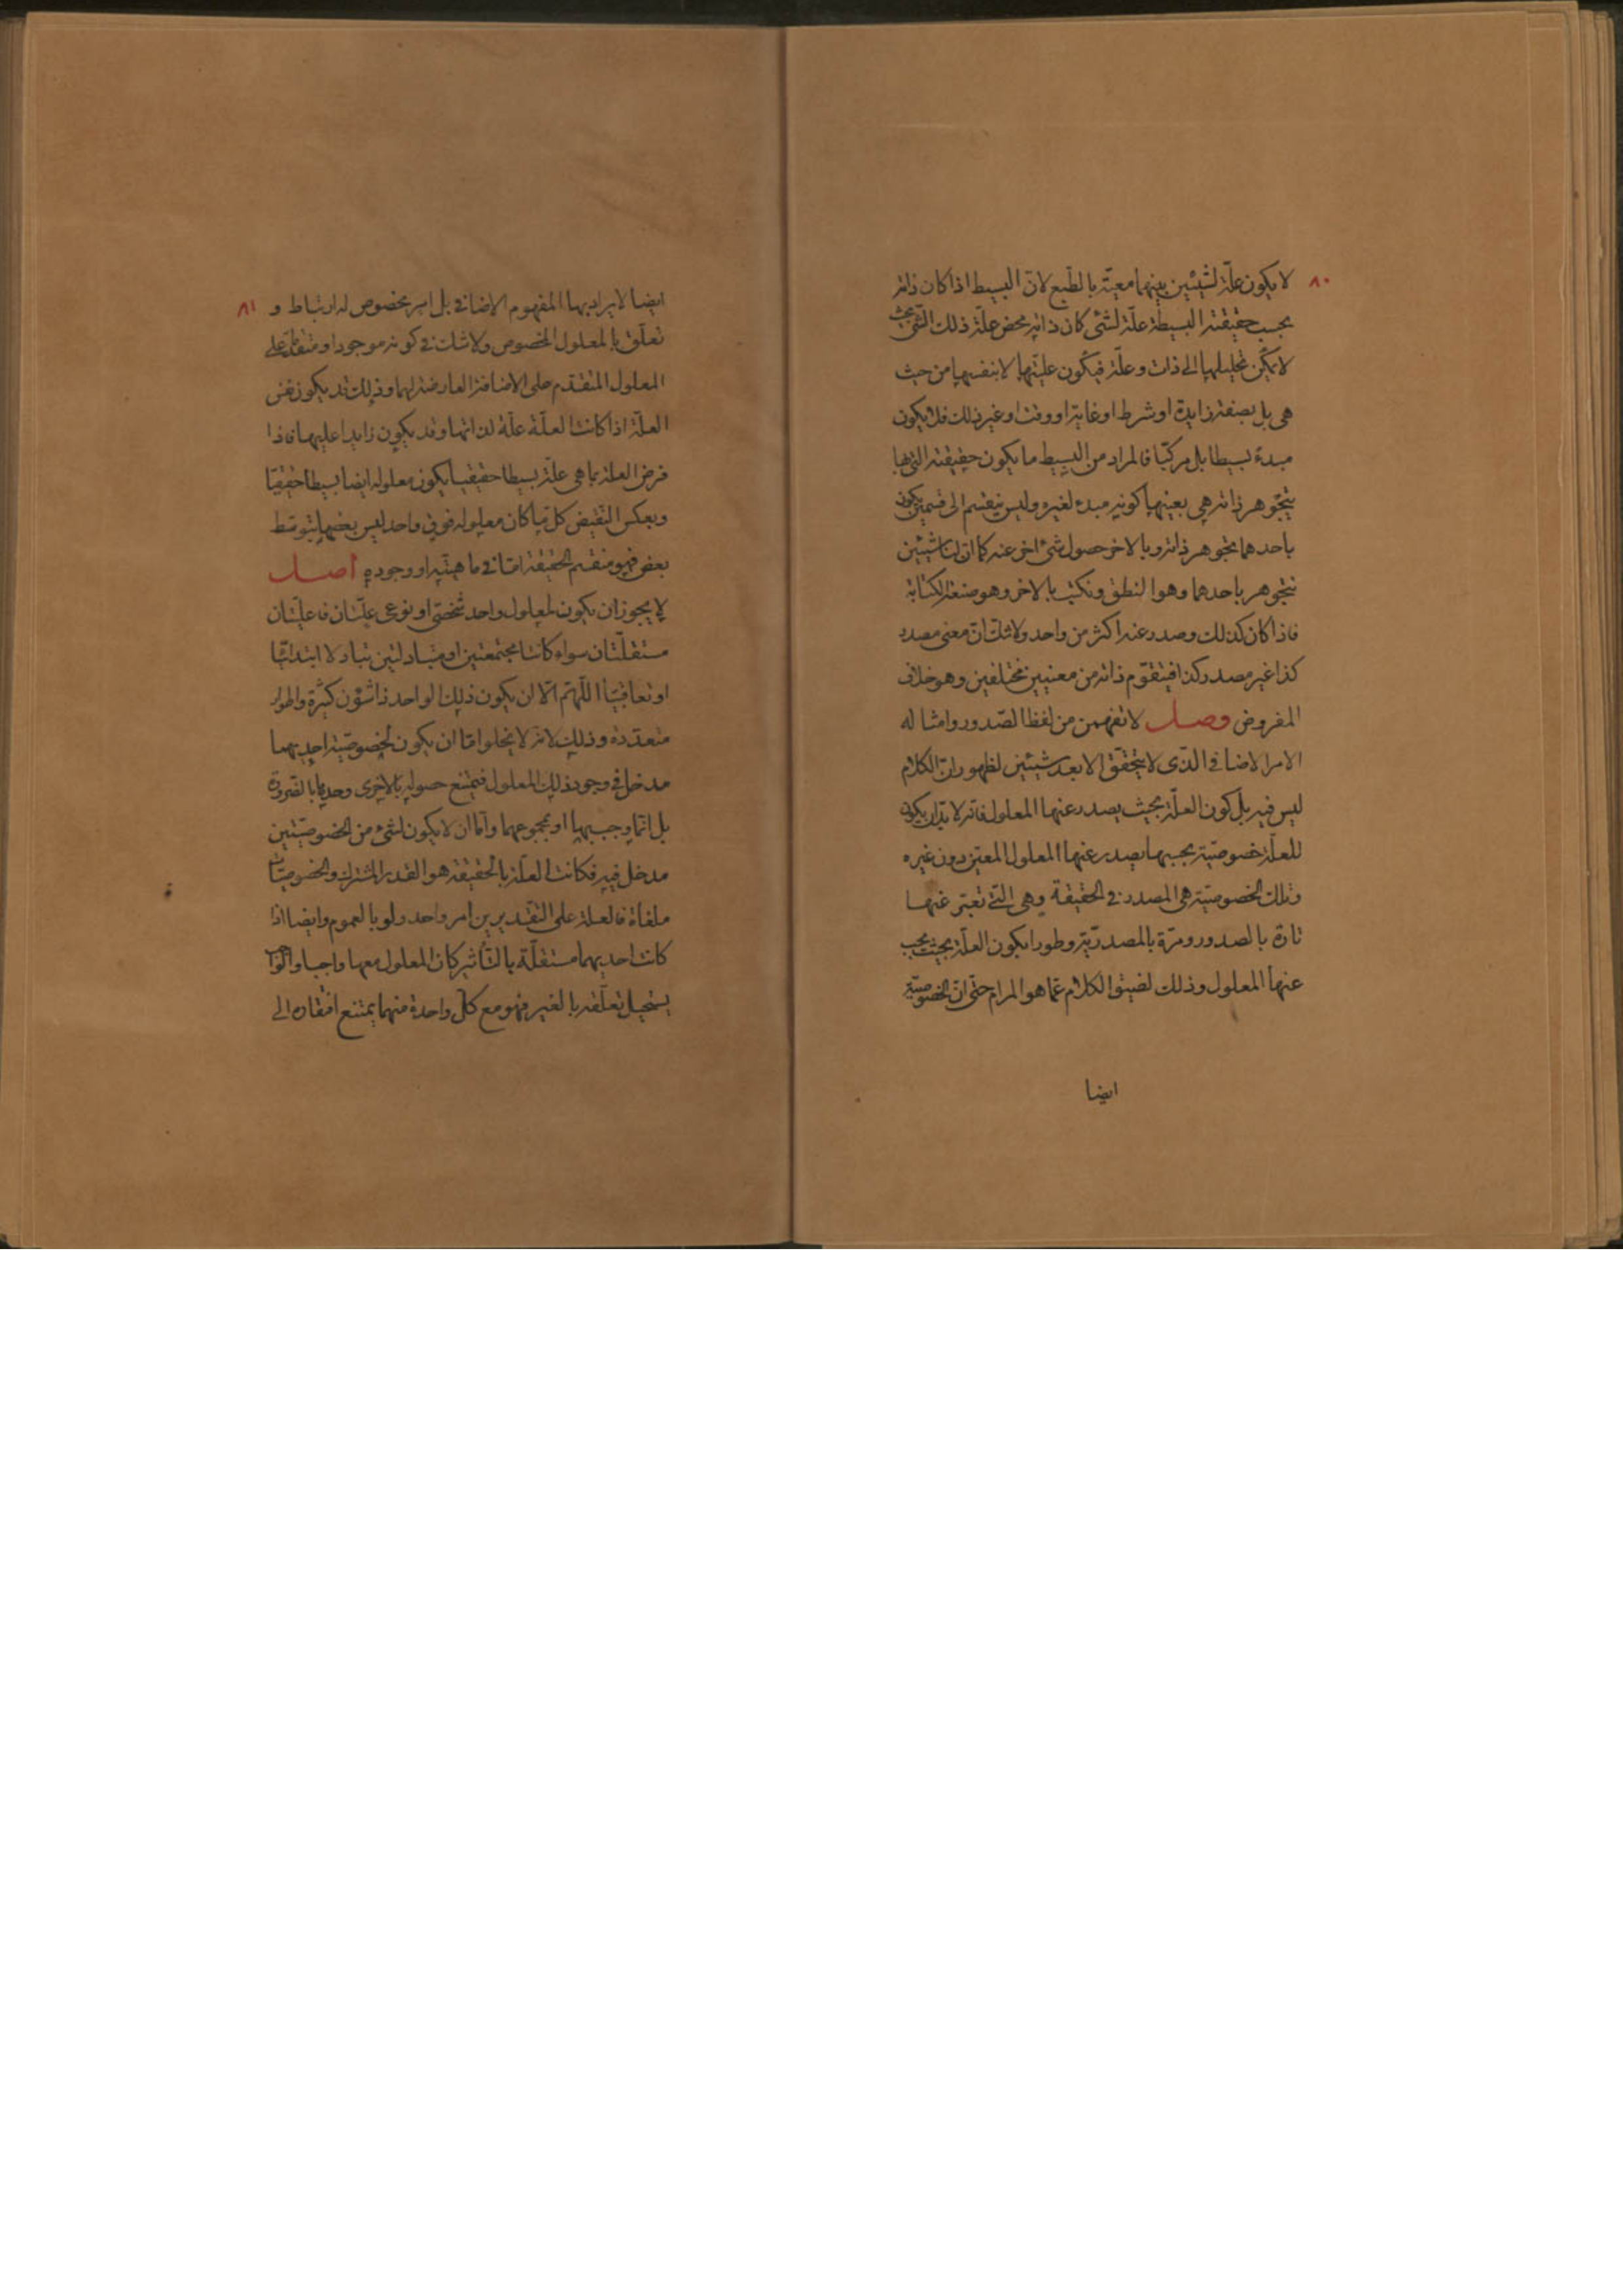 ٨٠
لا يكون علّة لشيئين بينهما معيّة بالطّبع لانّ البسيط اذا كان ذاته
بحسب حقيقته البسيطة علّة لشئ كان ذاته محض علّة ذلك الشّئ بحيث
لا يمكن تحليلها الى ذات وعلّة فيكون عليّتها لا بنفسها من حيث
هى بل بصفة زايدة او شرط او غاية او وقت او غير ذلك فلا يكون
مبدء بسيطا بل مركّبا فالمراد من البسيط ما يكون حقيقته التى بها
يتجوهر ذاته هى بعينها كونه مبدء لغيره وليس ينقسم الى قسمين يكون
باحدهما تجوهر ذاته وبالاخر حصول شئ اخر عنه كما ان لنا شيئين
نتجوهر باحدهما وهو النطق ونكتب بالاخر وهو صنعة الكتابة
فاذا كان كذلك وصدر عنه اكثر من واحد ولا شك انّ معنى مصدر
كذا غير مصدر كذا فيتقوّم ذاته من معنيين مختلفين وهو خلاف
المفروض وصل لا تفهمن من لفظ الصّدور وامثاله
الامر الاضافى الّذى لا يتحقّق الا بعد شيئين لظهور انّ الكلام
ليس فيه بل كون العلّة بحيث يصدر عنها المعلول فانه لا بدّ ان يكون
للعلّة خصوصيّة بحسبها يصدر عنها المعلول المعيّن دون غيره
وتلك الخصوصيّة هى المصدر فى الحقيقة وهى الّتى تعبّر عنها
تارة بالصدور ومرّة بالمصدريّة وطورا بكون العلّة بحيث يجب
عنها المعلول وذلك لضيق الكلام عمّا هو المرام حتى انّ الخصوصيّة
ايضا
٨١
ايضا لا يراد بها المفهوم الاضافى بل امر مخصوص له ارتباط و
تعلّق بالمعلول المخصوص ولا شك فى كونه موجودا ومتقدّما على
المعلول المتقدم على الاضافة العارضة لهما وذلك قد يكون نفس
العلّة اذا كانت العلّة علّة لذاتها وقد يكون زايدا عليها فاذا
فرض العلة بما هى علّة بسيطا حقيقيا يكون معلوله ايضا بسيطا حقيقيّا
وبعكس النقيض كل ما كان معلوله فوق واحد ليس بعضها بتوسّط
بعض فهو منقسم الحقيقة امّا فى ماهيّته او وجوده اصل
لا يجوز ان يكون لمعلول واحد شخصّى او نوعى علّتان فاعليّتان
مستقلّتان سواء كانتا مجتمعتين او متبادلتين تبادلا ابتدائيّا
او تعاقبيّا اللّهمّ الّا ان يكون ذلك الواحد ذا شؤن كثيرة واطوار
متعدّدة وذلك لانه لا يخلوا امّا ان يكون لخصوصيّة احديهما
مدخل فى وجود ذلك المعلول فيمتنع حصوله بالاخرى وحدها بالضرورة
بل انّما وجب بها او بمجموعهما وامّا ان لا يكون لشئ من الخصوصيّتين
مدخل فيه فكانت العلّة بالحقيقة هو القدر المشترك والخصوصيّات
ملغاة فالعلة على التقديرين امر واحد ولو بالعموم وايضا اذا
كانت احديهما مستقلّة بالتّأثير كان المعلول معها واجبا والواجب
يستحيل تعلّقه بالغير فهو مع كلّ واحدة منهما يمتنع افتقاره الى